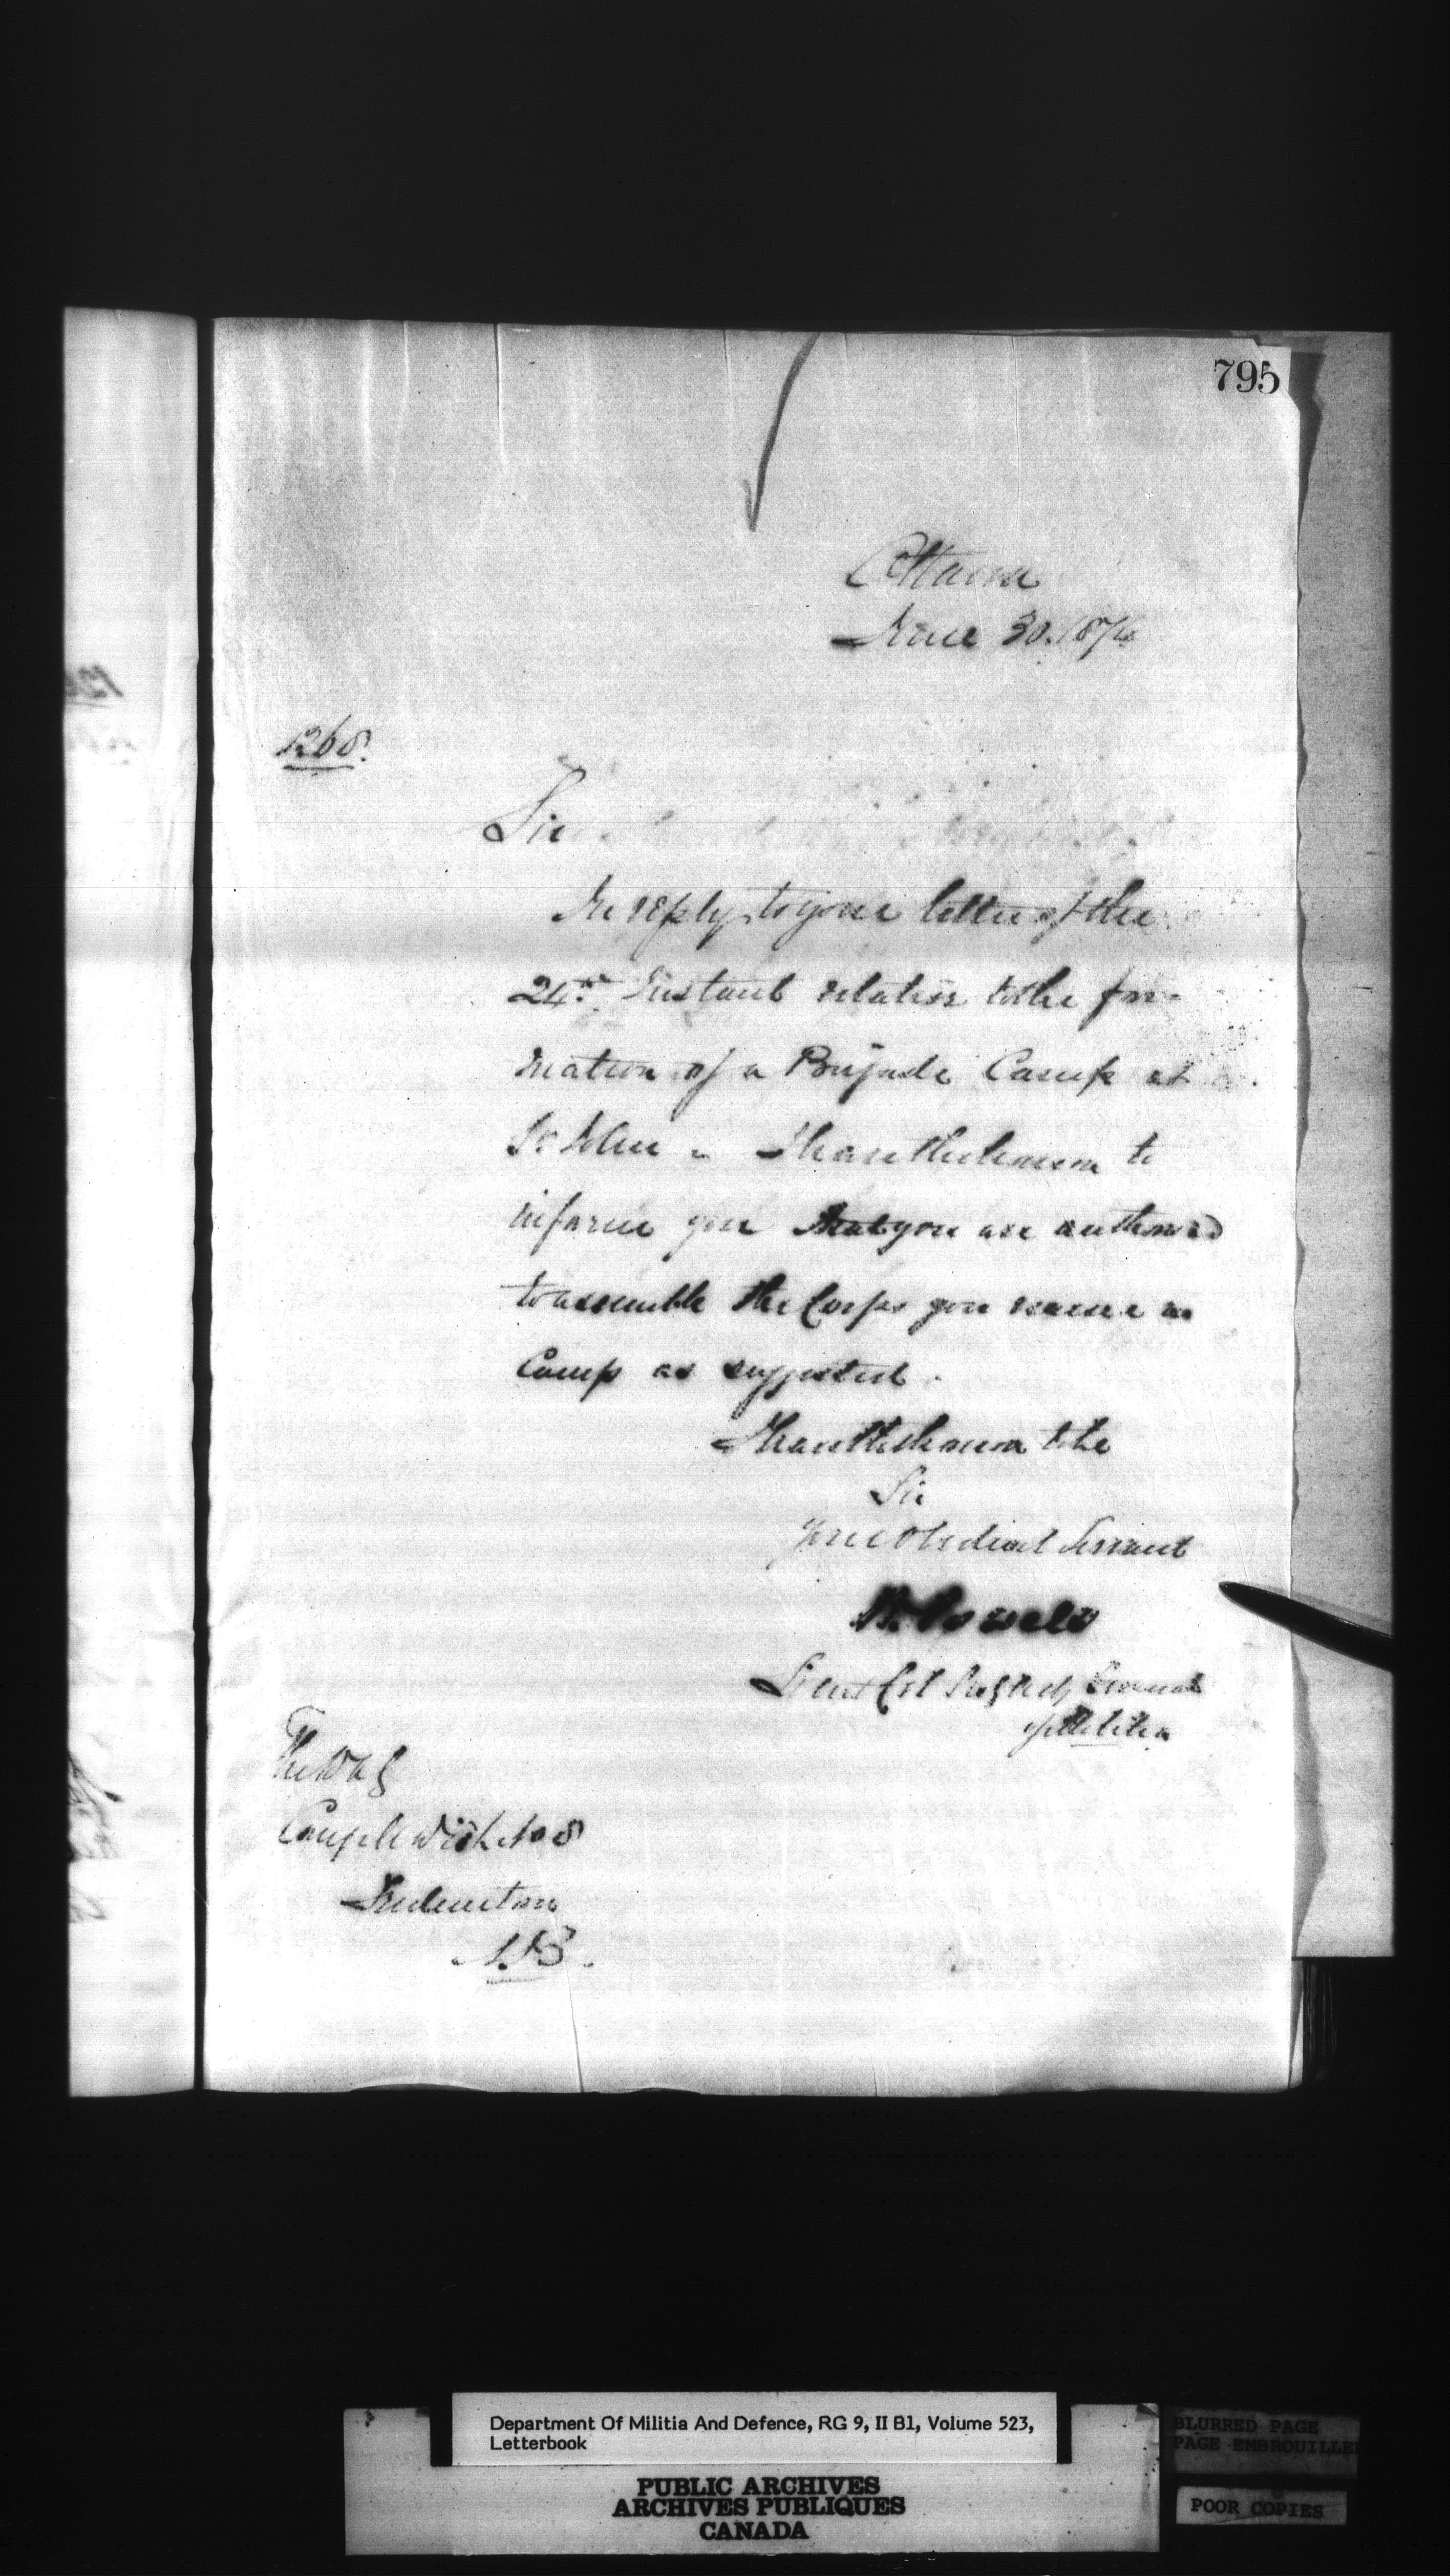 795
Ottawa
June 30. 187
1268.
Sir
In reply to your letter of the
24th Instant relative to the for-
mation of a Brigade Camp at
St John - I have the honour to
inform you that you are authorized
to assemble the Corps you name in
Camp as suggested.
I have the honour to be
Sir
Your Obedient Servant
W. Powell
Lieut Col Adjt General
of Militia
The D A G
Comg M Dist No 8
Fredericton
N.B.
Department Of Militia And Defence, RG 9, II B1, Volume 523,
Letterbook
PUBLIC ARCHIVES
ARCHIVES PUBLIQUES
CANADA
BLURRED PAGE
PAGE EMBROUILLE
POOR COPIES